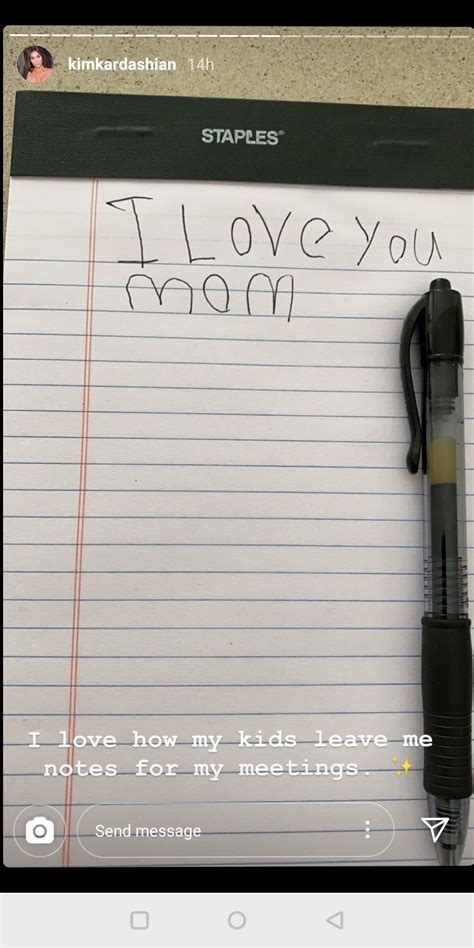 kimkardashian 14h
STAPLES®
I Love you
mom
I love how my kids leave me
notes for my meetings. ✨
Send message